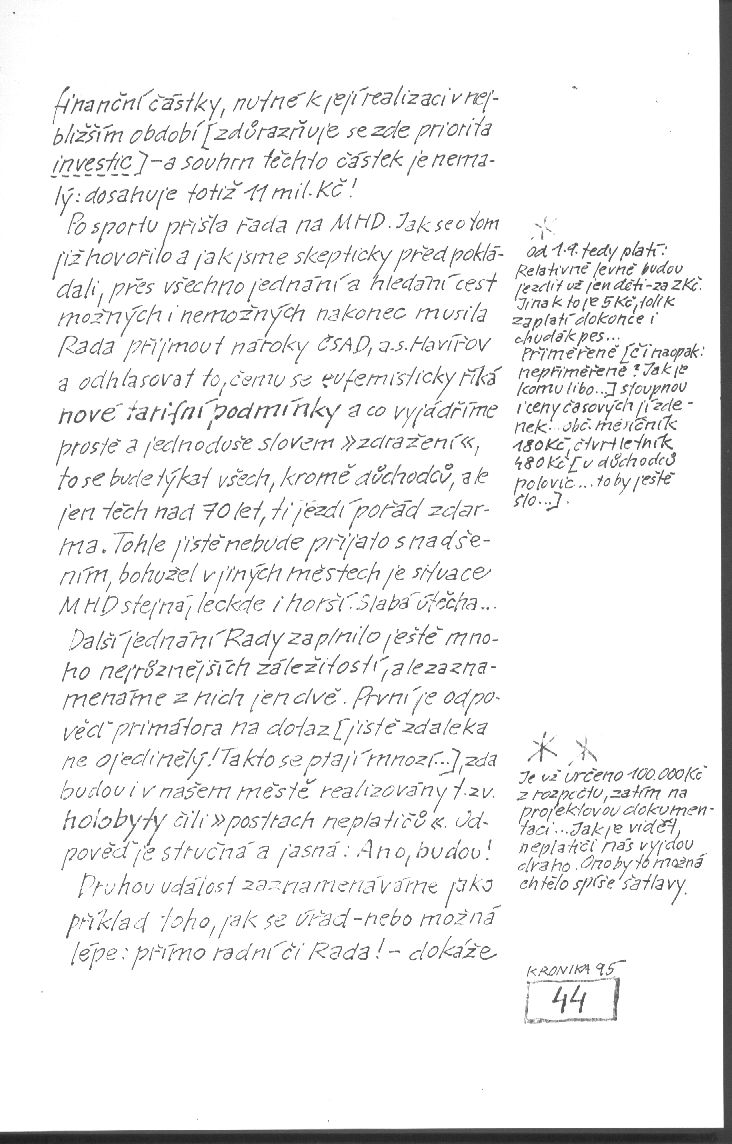 finanční částky, nutné k její realizaci v nej-
bližším období [zdůrazňuje se zde priorita
investic] – a souhrn těchto částek je nema-
lý: dosahuje totiž 11 mil. Kč!
Po sportu přišla řada na MHD. Jak se o tom
již hovořilo a jak jsme skepticky předpoklá-
dali, přes všechno jednání a hledání cest
možných i nemožných nakonec musila
Rada přijmout nároky ČSAD, a.s. Havířov
a odhlasovat to, čemu se eufemisticky říká
nové tarifní podmínky a co vyjádříme
prostě a jednoduše slovem »zdražení«,
to se bude týkat všech, kromě důchodců, ale
jen těch nad 70 let, ti jezdí pořád zdar-
ma. Tohle jistě nebude přijato s nadše-
ním, bohužel v jiných městech je situace
MHD stejná, leckde i horší. Slabá útěcha...
Další jednání Rady zaplnilo ještě mno-
ho nejrůznějších záležitostí, ale zazna-
menáme z nich jen dvě. První je odpo-
věď primátora na dotaz [jistě zdaleka
ne ojedinělý! Takto se ptají mnozí...], zda
budou i v našem městě realizovány t.zv.
holobyty čili »postrach neplatičů«. Od-
pověď je stručná a jasná: Ano, budou!
Druhou událost zaznamenáváme jako
příklad toho, jak se úřad – nebo možná
lépe: přímo radní či Rada! – dokáže
*
Od 1.9. tedy platí:
Relativně levně budou
jezdit už jen děti – za 2 Kč.
Jinak to je 5 Kč, tolik
zaplatí dokonce i
chudák pes...
Přiměřeně [či naopak:
nepřiměřeně? Jak je
komu libo...] stoupnou
i ceny časových jízde-
nek: obč. měsíčník
180 Kč, čtvrtletník
480 Kč [u důchodců
polovic... to by ještě
šlo...].
* *
Je už určeno 100.000 Kč
z rozpočtu, zatím na
projektovou dokumen-
taci... Jak je vidět,
neplatiči nás vyjdou
draho. Ono by to možná
chtělo spíše šatlavy.
KRONIKA 95
44